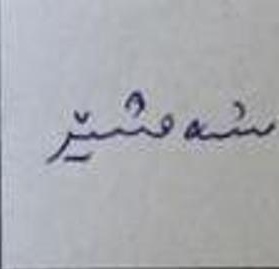 شەمشێر